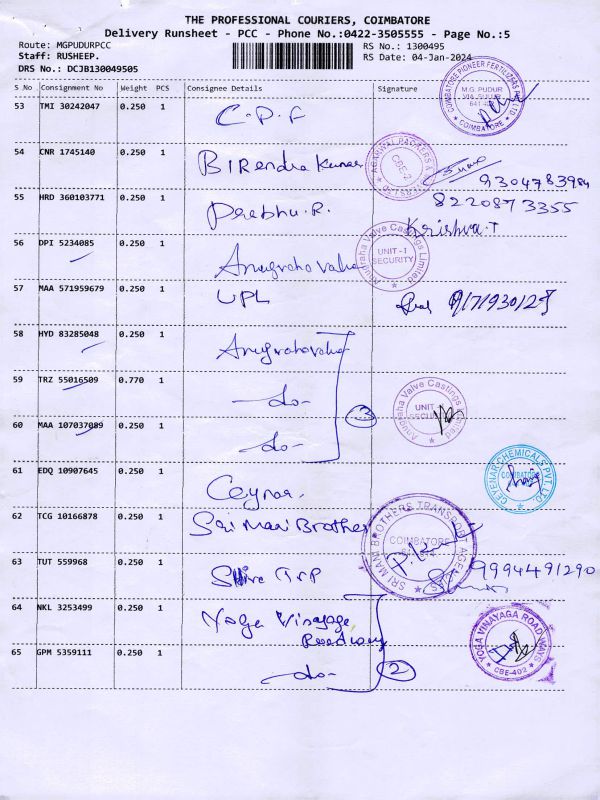 THE PROFESSIONAL COURIERS, COIMBATORE
Delivery Runsheet - PCC - Phone No.:0422-3505555 - Page No.:5
Route: MGPUDURPCC RS No.: 1300495
Staff: RUSHEEP. RS Date: 04-Jan-2024
DRS No.: DCJB130049505
S No Consignment No Weight PCS Consignee Details Signature
53 TMI 30242047 0.250 1 C.P.F
COIMBATORE PIONEER FERTILIZERS PVT LTD M.G. PUDUR COIMBATORE
54 CNR 1745140 0.250 1 BIRendra Kumar 9304783984
AGARWAL PACKERS & CBE-2
55 HRD 360103771 0.250 1 Prabhu.R. 8220873355
Krishna.T
56 DPI 5234085 0.250 1 Anugraha Valve
Anugraha Valve Castings Limited UNIT-1 SECURITY
57 MAA 571959679 0.250 1 UPL
58 HYD 83285048 0.250 1 Anugrahavalve
59 TRZ 55016509 0.770 1 -do-
Anugraha Valve Castings Limited UNIT SECURITY
60 MAA 107037089 0.250 1 -do- 3
61 EDQ 10907645 0.250 1 Ceynar
CEYENAR CHEMICALS PVT. LTD. COIMBATORE
62 TCG 10166878 0.250 1 Sri Mani Brothers
SRI MANI BROTHERS TRANSPORT AGENCY COIMBATORE
63 TUT 559968 0.250 1 Shiva TRP 9994491290
64 NKL 3253499 0.250 1 Yoga Vinayaga
Roadway
YOGA VINAYAGA ROAD WAYS CBE-402
65 GPM 5359111 0.250 1 -do- 2